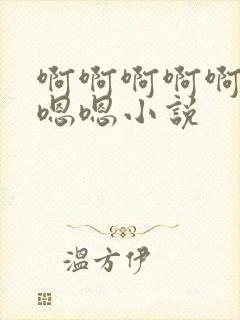 啊啊啊啊啊
嗯嗯小説
溫方伊